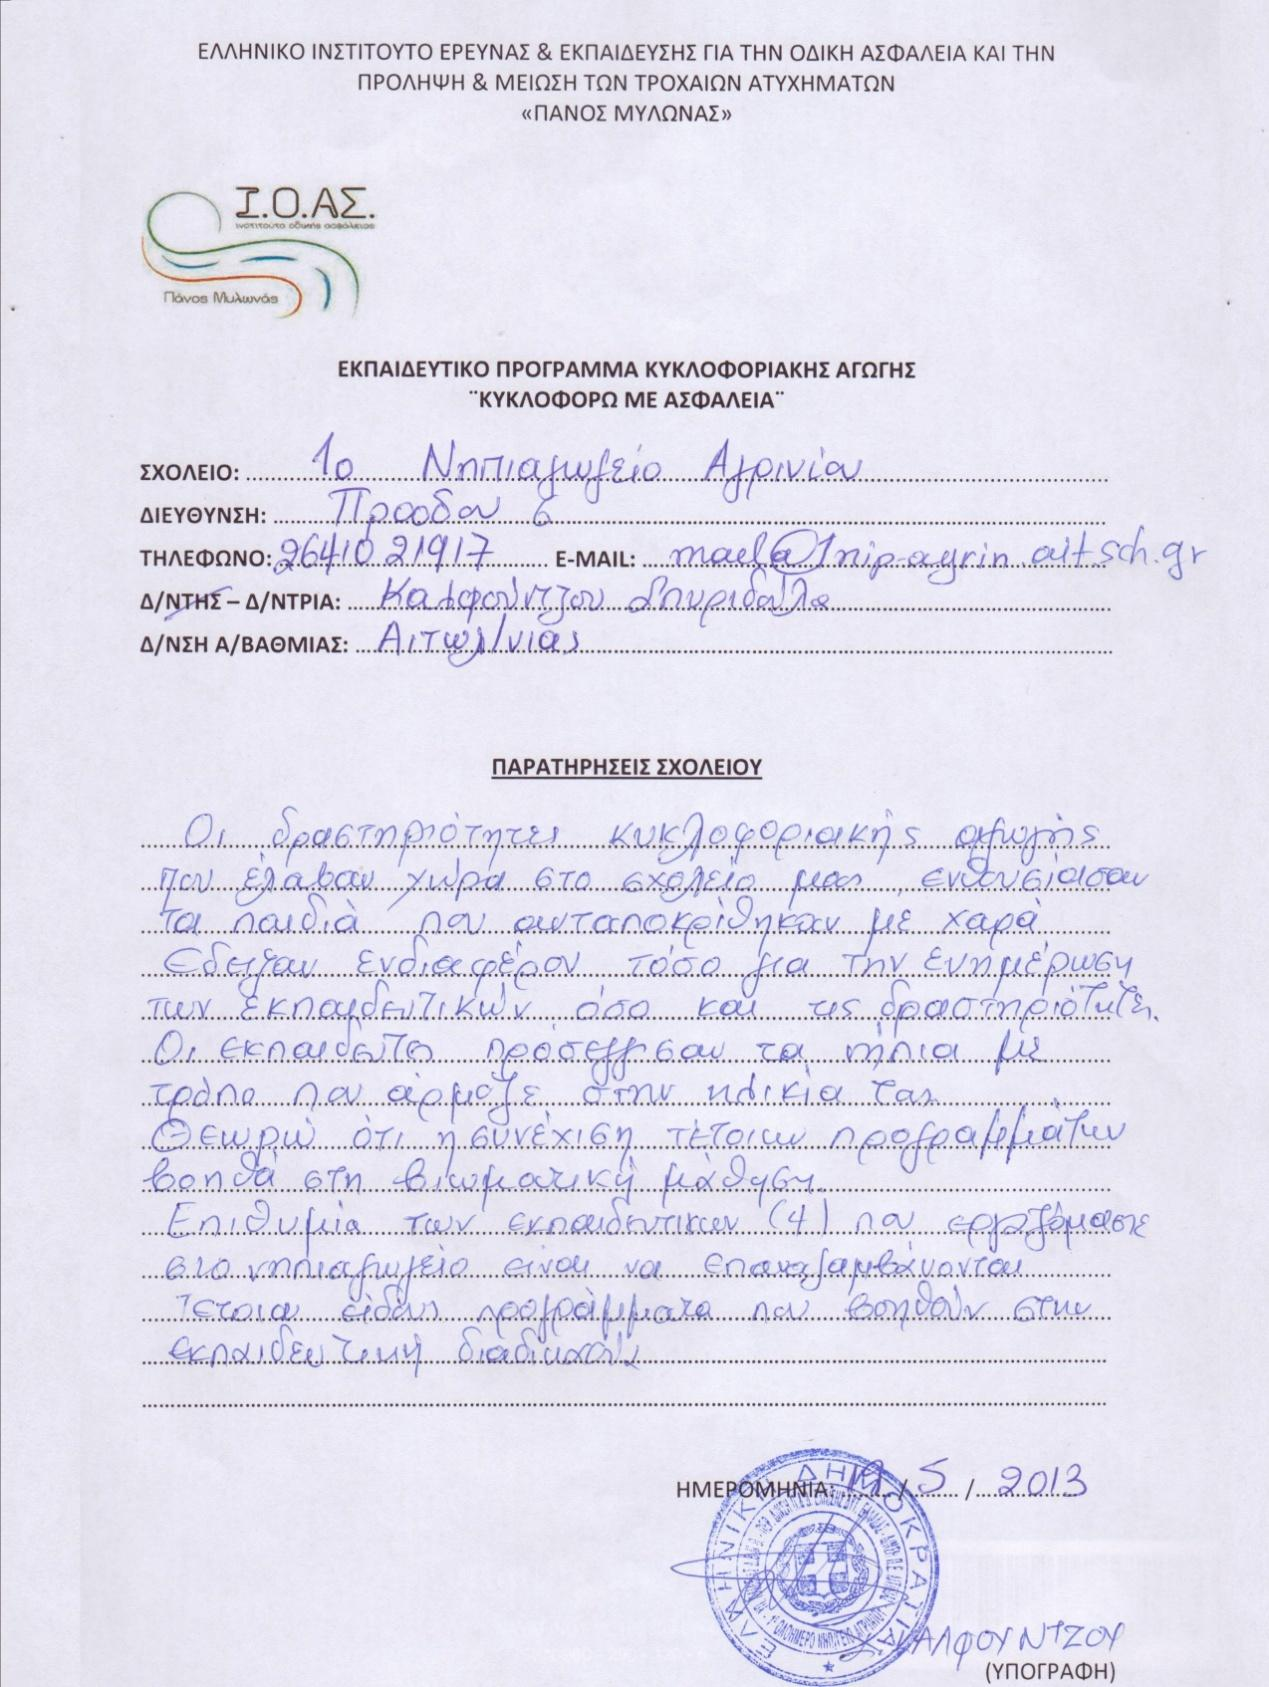 ΕΛΛΗΝΙΚΟ ΙΝΣΤΙΤΟΥΤΟ ΕΡΕΥΝΑΣ & ΕΚΠΑΙΔΕΥΣΗΣ ΓΙΑ ΤΗΝ ΟΔΙΚΗ ΑΣΦΑΛΕΙΑ ΚΑΙ ΤΗΝ
ΠΡΟΛΗΨΗ & ΜΕΙΩΣΗ ΤΩΝ ΤΡΟΧΑΙΩΝ ΑΤΥΧΗΜΑΤΩΝ
«ΠΑΝΟΣ ΜΥΛΩΝΑΣ»
Ι.Ο.ΑΣ.
ινστιτούτο οδικής ασφάλειας
Πάνος Μυλωνάς
ΕΚΠΑΙΔΕΥΤΙΚΟ ΠΡΟΓΡΑΜΜΑ ΚΥΚΛΟΦΟΡΙΑΚΗΣ ΑΓΩΓΗΣ
¨ΚΥΚΛΟΦΟΡΩ ΜΕ ΑΣΦΑΛΕΙΑ¨
ΣΧΟΛΕΙΟ: 1ο Νηπιαγωγείο Αγρινίου
ΔΙΕΥΘΥΝΣΗ: Προόδου 6
ΤΗΛΕΦΩΝΟ: 26410 21917 E-MAIL: mail@1nip-agrin.ait.sch.gr
Δ/ΝΤΗΣ – Δ/ΝΤΡΙΑ: Καλφούντζου Σπυριδούλα
Δ/ΝΣΗ Α/ΒΑΘΜΙΑΣ: Αιτωλ/νιας
ΠΑΡΑΤΗΡΗΣΕΙΣ ΣΧΟΛΕΙΟΥ
Οι δραστηριότητες κυκλοφοριακής αγωγής
που έλαβαν χώρα στο σχολείο μας, ενθουσίασαν
τα παιδιά που ανταποκρίθηκαν με χαρά
Έδειξαν ενδιαφέρον τόσο για την ενημέρωση
των εκπαιδευτικών όσο και τις δραστηριότητες.
Οι εκπαιδευτές προσέγγισαν τα νήπια με
τρόπο που άρμοζε στην ηλικία τους
Θεωρώ ότι η συνέχιση τέτοιων προγραμμάτων
βοηθά στη βιωματική μάθηση.
Επιθυμία των εκπαιδευτικών (4) που εργαζόμαστε
στο νηπιαγωγείο είναι να επαναλαμβάνονται
Τέτοιου είδους προγράμματα που βοηθούν στην
εκπαιδευτική διαδικασία
ΗΜΕΡΟΜΗΝΙΑ: / 5 / 2013
ΕΛΛΗΝΙΚΗ ΔΗΜΟΚΡΑΤΙΑ
ΚΑΛΦΟΥΝΤΖΟΥ
(ΥΠΟΓΡΑΦΗ)